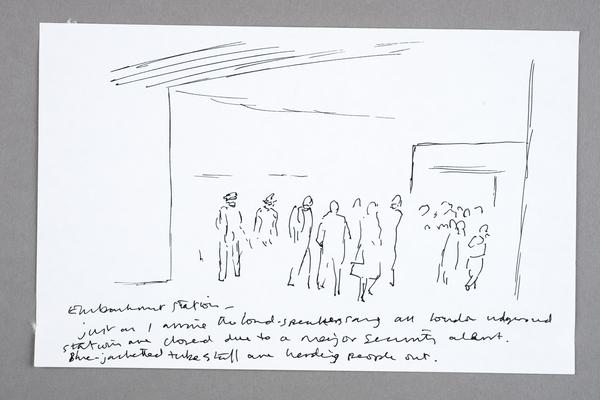 Embankment station –
just as I arrive the loud-speakers say all London underground
stations are closed due to a major security alert.
Blue-jacketed tube staff are herding people out.